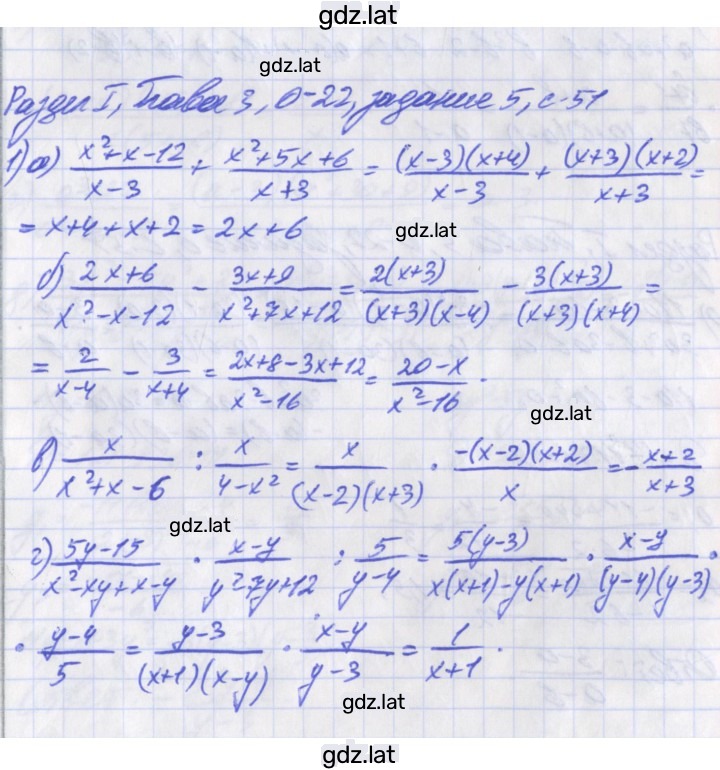 gdz.lat
gdz.lat
Раздел I, Глава 3, О-22, задание 5, с 51
1) а) (x²+x-12)/(x-3) + (x²+5x+6)/(x+3) = ((x-3)(x+4))/(x-3) + ((x+3)(x+2))/(x+3) =
= x+4+x+2 = 2x+6
gdz.lat
б) (2x+6)/(x²-x-12) - (3x+9)/(x²+7x+12) = (2(x+3))/((x+3)(x-4)) - (3(x+3))/((x+3)(x+4)) =
= 2/(x-4) - 3/(x+4) = (2x+8-3x+12)/(x²-16) = (20-x)/(x²-16).
gdz.lat
в) x/(x²+x-6) : x/(4-x²) = x/((x-2)(x+3)) · (-(x-2)(x+2))/x = -(x+2)/(x+3)
gdz.lat
г) (5y-15)/(x²-xy+x-y) · (x-y)/(y²-7y+12) : 5/(y-4) = (5(y-3))/(x(x+1)-y(x+1)) · (x-y)/((y-4)(y-3)) ·
· (y-4)/5 = (y-3)/((x+1)(x-y)) · (x-y)/(y-3) = 1/(x+1).
gdz.lat
gdz.lat